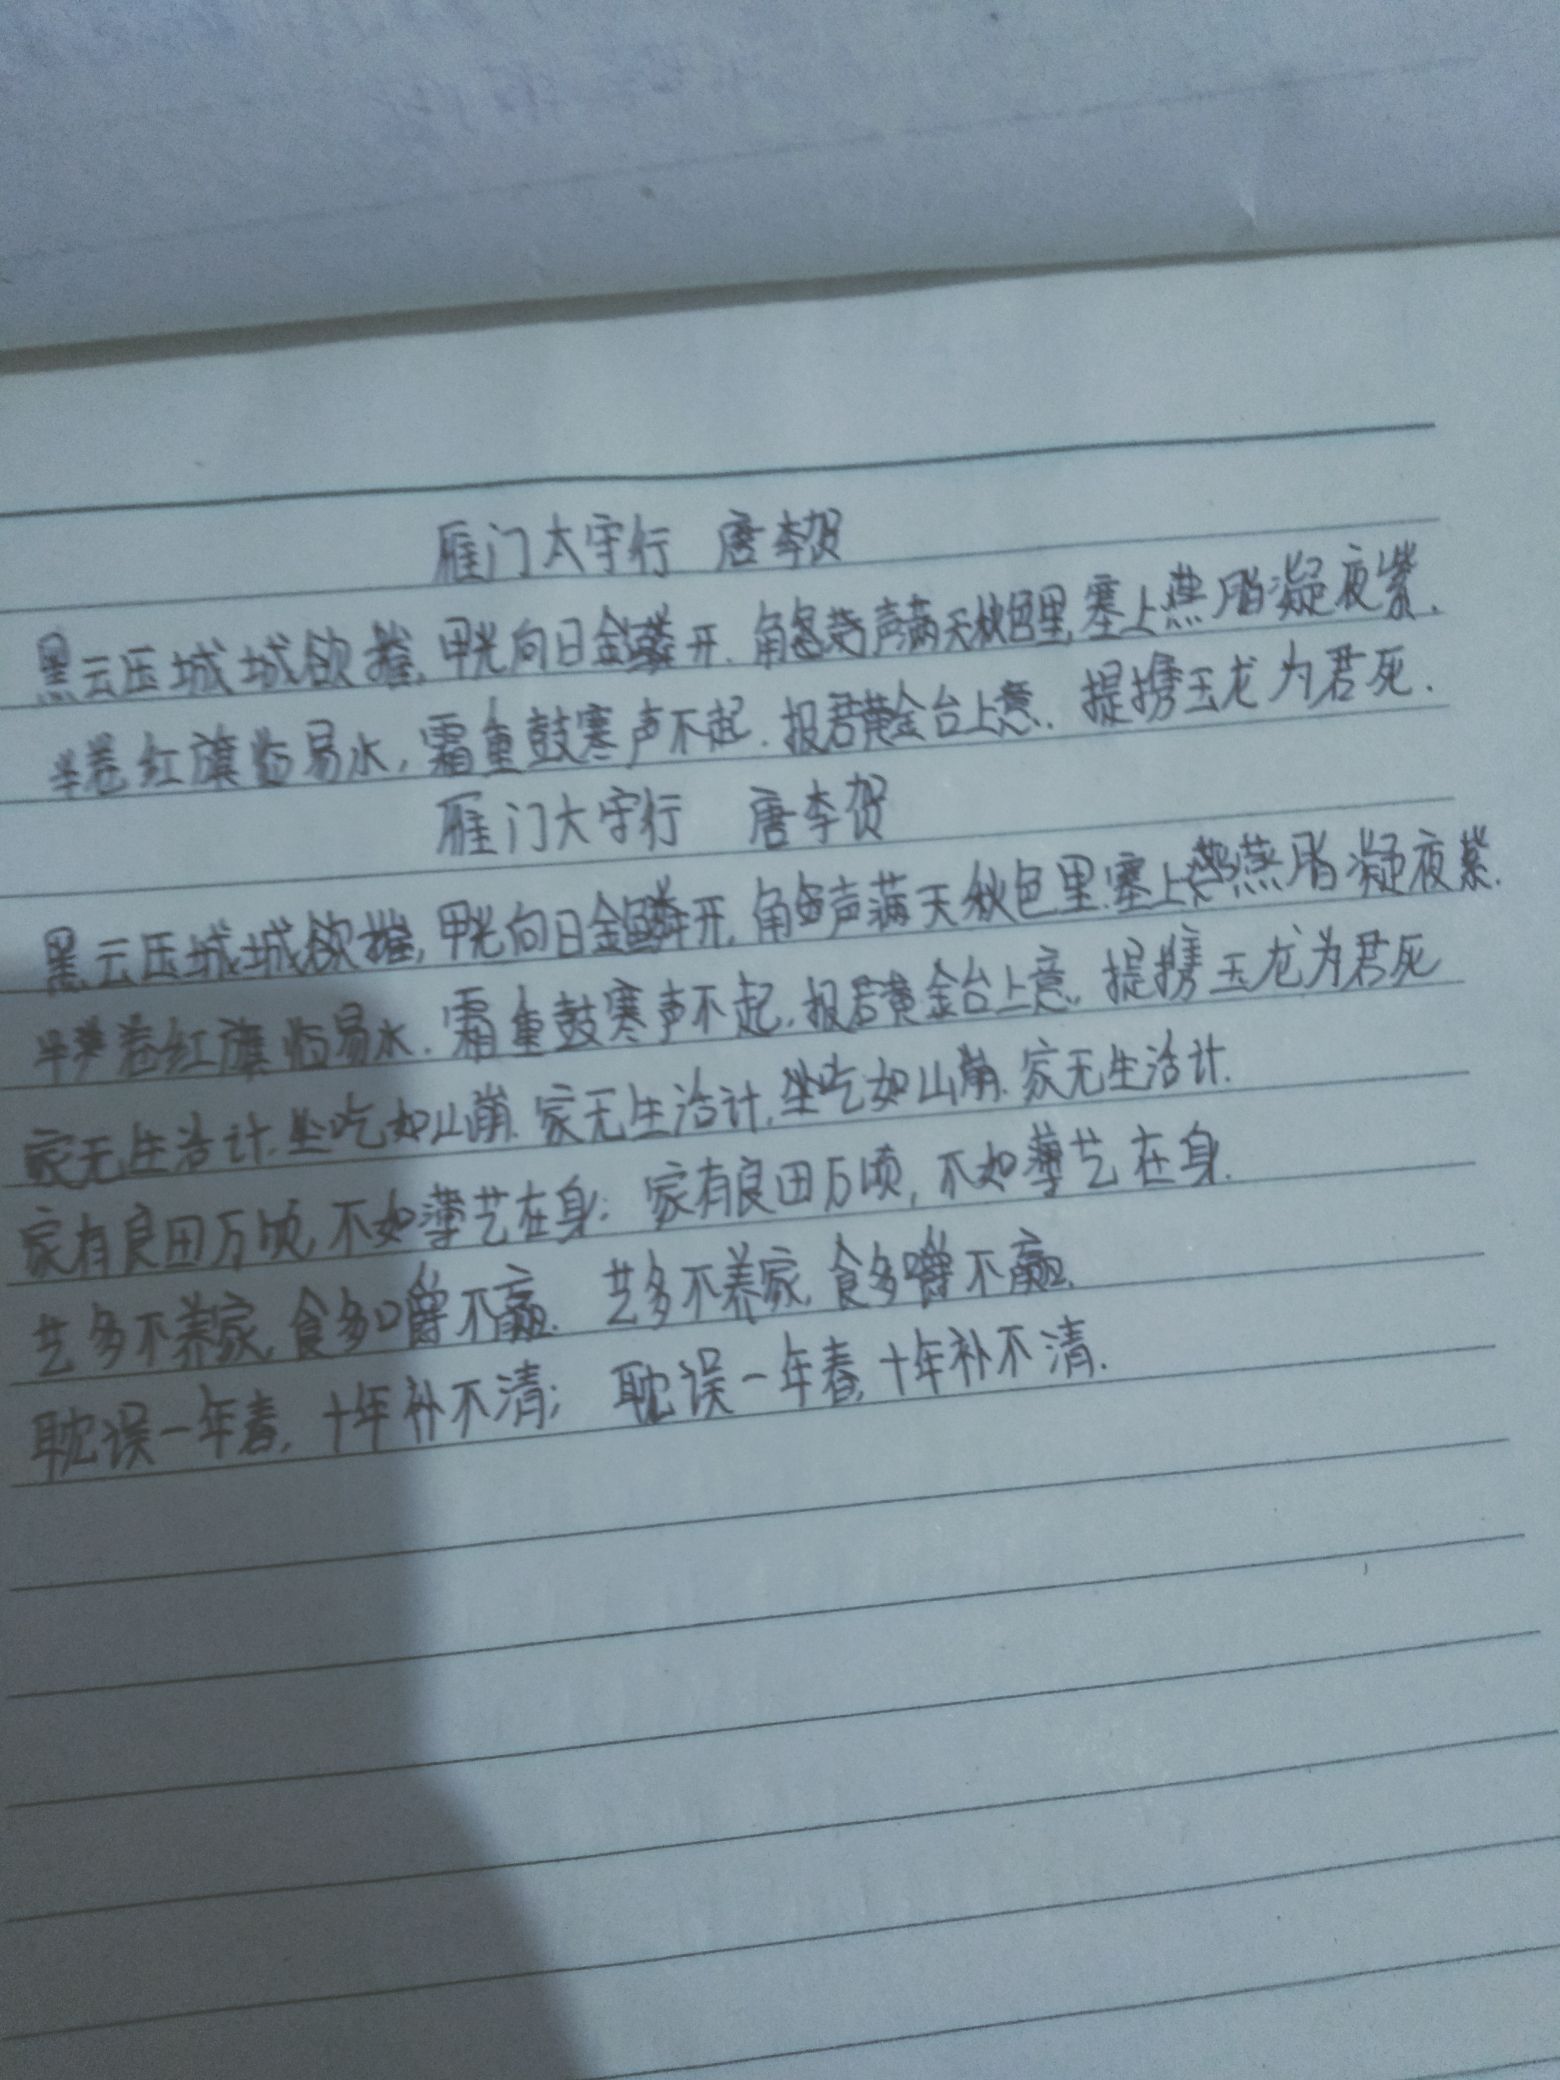 雁门太守行 唐李贺
黑云压城城欲摧,甲光向日金鳞开.角声满天秋色里,塞上燕脂凝夜紫.
半卷红旗临易水,霜重鼓寒声不起.报君黄金台上意.提携玉龙为君死.
雁门太守行 唐李贺
黑云压城城欲摧,甲光向日金鳞开,角声满天秋色里.塞上燕脂凝夜紫.
半卷红旗临易水.霜重鼓寒声不起,报君黄金台上意.提携玉龙为君死
家无生活计.坐吃如山崩.家无生活计,坐吃如山崩.家无生活计.
家有良田万顷,不如薄艺在身; 家有良田万顷,不如薄艺在身.
艺多不养家,食多嚼不赢. 艺多不养家,食多嚼不赢.
耽误一年春,十年补不清; 耽误一年春,十年补不清.